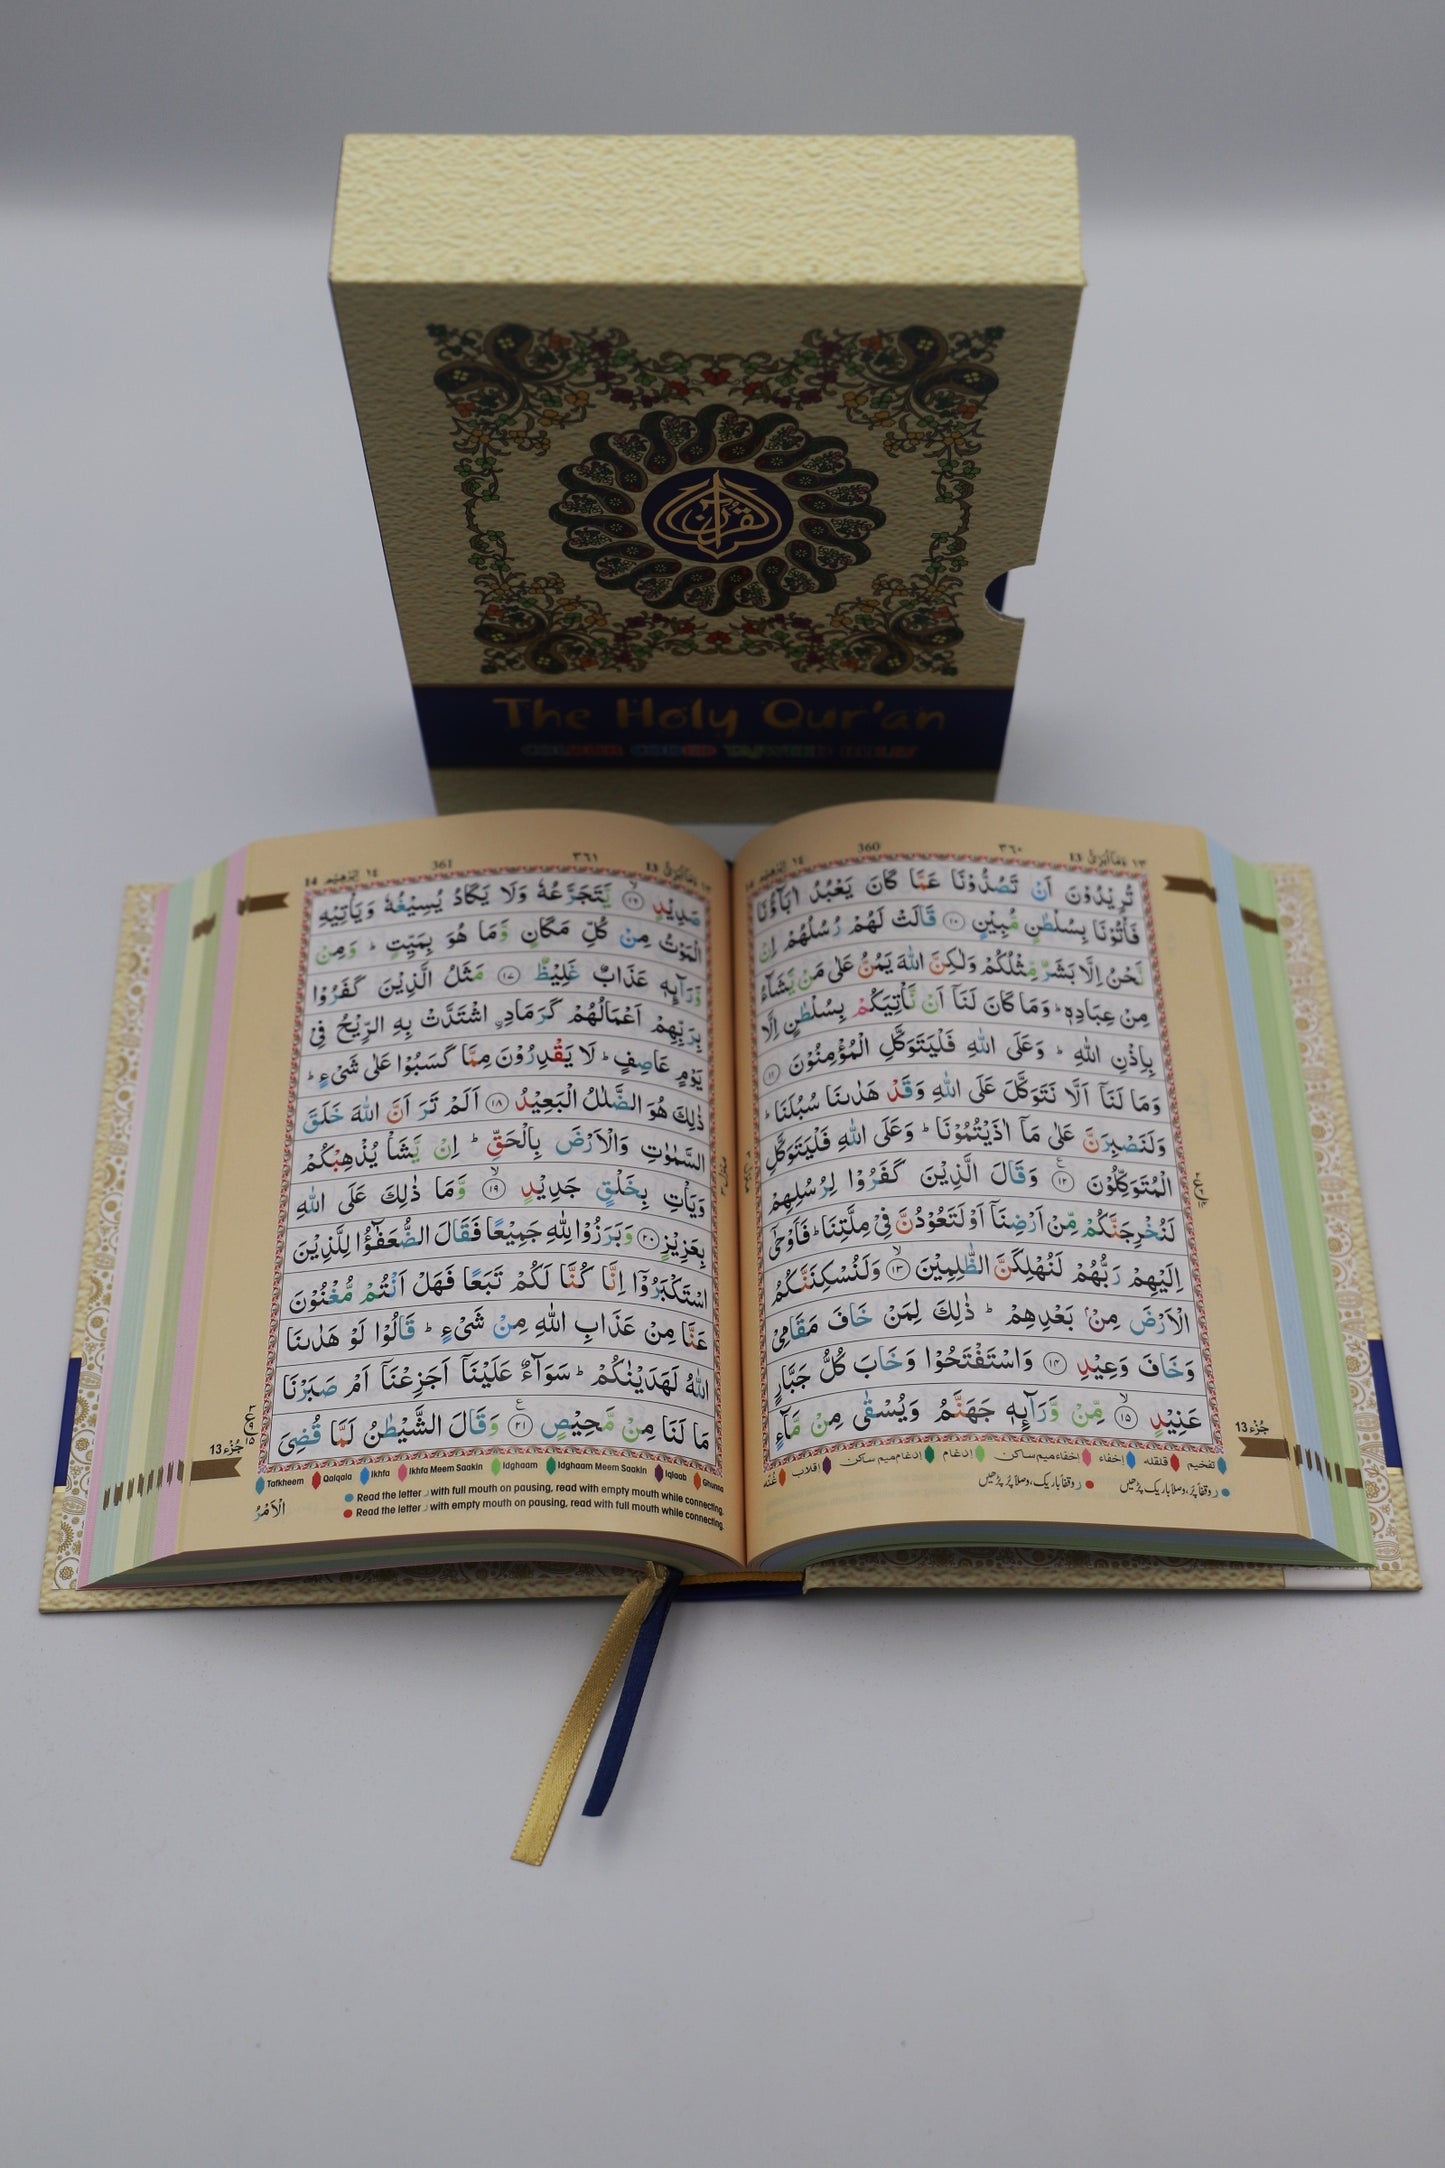 قرآن
The Holy Qur'an
COLOUR CODED TAJWEED RULES
١٣ وَمَآ اُبَرِّئُ 13
٣٦٠
360
١٤ اِبْرٰهِيْم 14
تُرِيْدُوْنَ اَنْ تَصُدُّوْنَا عَمَّا كَانَ يَعْبُدُ اٰبَآؤُنَا
فَاْتُوْنَا بِسُلْطٰنٍ مُّبِيْنٍ ۝١٠ قَالَتْ لَهُمْ رُسُلُهُمْ اِنْ
نَّحْنُ اِلَّا بَشَرٌ مِّثْلُكُمْ وَلٰكِنَّ اللّٰهَ يَمُنُّ عَلٰى مَنْ يَّشَآءُ
مِنْ عِبَادِهٖ ؕ وَمَا كَانَ لَنَآ اَنْ نَّاْتِيَكُمْ بِسُلْطٰنٍ اِلَّا
بِاِذْنِ اللّٰهِ ؕ وَعَلَى اللّٰهِ فَلْيَتَوَكَّلِ الْمُؤْمِنُوْنَ ۝١١
وَمَا لَنَآ اَلَّا نَتَوَكَّلَ عَلَى اللّٰهِ وَقَدْ هَدٰىنَا سُبُلَنَا ؕ
وَلَنَصْبِرَنَّ عَلٰى مَآ اٰذَيْتُمُوْنَا ؕ وَعَلَى اللّٰهِ فَلْيَتَوَكَّلِ
الْمُتَوَكِّلُوْنَ ۝١٢ وَقَالَ الَّذِيْنَ كَفَرُوْا لِرُسُلِهِمْ
لَنُخْرِجَنَّكُمْ مِّنْ اَرْضِنَآ اَوْ لَتَعُوْدُنَّ فِيْ مِلَّتِنَا ؕ فَاَوْحٰٓى
اِلَيْهِمْ رَبُّهُمْ لَنُهْلِكَنَّ الظّٰلِمِيْنَ ۝١٣ وَلَنُسْكِنَنَّكُمُ
الْاَرْضَ مِنْۢ بَعْدِهِمْ ؕ ذٰلِكَ لِمَنْ خَافَ مَقَامِيْ
وَخَافَ وَعِيْدِ ۝١٤ وَاسْتَفْتَحُوْا وَخَابَ كُلُّ جَبَّارٍ
عَنِيْدٍ ۝١٥ مِّنْ وَّرَآئِهٖ جَهَنَّمُ وَيُسْقٰى مِنْ مَّآءٍ
جُزْء 13
تفخيم قلقله إخفاء إخفاء ميم ساكن إدغام إدغام ميم ساكن إقلاب غُنّه
ر وقفاً پُر، وصلاً باریک پڑھیں ر وقفاً باریک، وصلاً پُر پڑھیں
١٣ وَمَآ اُبَرِّئُ 13
٣٦١
361
١٤ اِبْرٰهِيْم 14
صَدِيْدٍ ۝١٦ يَّتَجَرَّعُهٗ وَلَا يَكَادُ يُسِيْغُهٗ وَيَاْتِيْهِ
الْمَوْتُ مِنْ كُلِّ مَكَانٍ وَّمَا هُوَ بِمَيِّتٍ ؕ وَمِنْ
وَّرَآئِهٖ عَذَابٌ غَلِيْظٌ ۝١٧ مَثَلُ الَّذِيْنَ كَفَرُوْا
بِرَبِّهِمْ اَعْمَالُهُمْ كَرَمَادِ ۨاشْتَدَّتْ بِهِ الرِّيْحُ فِيْ
يَوْمٍ عَاصِفٍ ؕ لَا يَقْدِرُوْنَ مِمَّا كَسَبُوْا عَلٰى شَيْءٍ ؕ
ذٰلِكَ هُوَ الضَّلٰلُ الْبَعِيْدُ ۝١٨ اَلَمْ تَرَ اَنَّ اللّٰهَ خَلَقَ
السَّمٰوٰتِ وَالْاَرْضَ بِالْحَقِّ ؕ اِنْ يَّشَاْ يُذْهِبْكُمْ
وَيَاْتِ بِخَلْقٍ جَدِيْدٍ ۝١٩ وَّمَا ذٰلِكَ عَلَى اللّٰهِ
بِعَزِيْزٍ ۝٢٠ وَبَرَزُوْا لِلّٰهِ جَمِيْعًا فَقَالَ الضُّعَفٰٓؤُا لِلَّذِيْنَ
اسْتَكْبَرُوْٓا اِنَّا كُنَّا لَكُمْ تَبَعًا فَهَلْ اَنْتُمْ مُّغْنُوْنَ
عَنَّا مِنْ عَذَابِ اللّٰهِ مِنْ شَيْءٍ ؕ قَالُوْا لَوْ هَدٰىنَا
اللّٰهُ لَهَدَيْنٰكُمْ ؕ سَوَآءٌ عَلَيْنَآ اَجَزِعْنَآ اَمْ صَبَرْنَا
مَا لَنَا مِنْ مَّحِيْصٍ ۝٢١ وَقَالَ الشَّيْطٰنُ لَمَّا قُضِيَ
جُزْء 13
Tafkheem Qalqala Ikhfa Ikhfa Meem Saakin Idghaam Idghaam Meem Saakin Iqlaab Ghunna
Read the letter ر with full mouth on pausing, read with empty mouth while connecting.
Read the letter ر with empty mouth on pausing, read with full mouth while connecting.
الْاَمْرُ